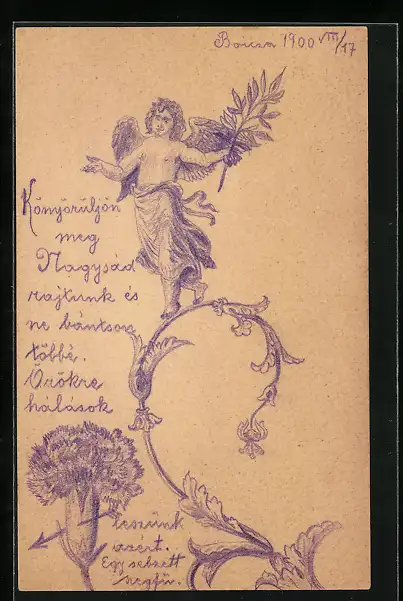 Bocsa 1900 VIII/17
Könyörüljön
meg
Nagysád
rajtunk és
ne bántson
többé.
Örökre
hálások
leszünk
azért.
Egy sebzett
szegfü.